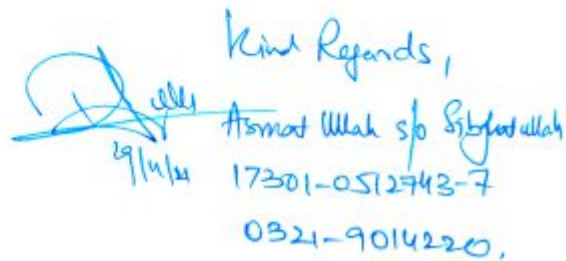 Kind Regards,
Asmat Ullah s/o Sibghatullah
17301-0512743-7
0321-9014220.